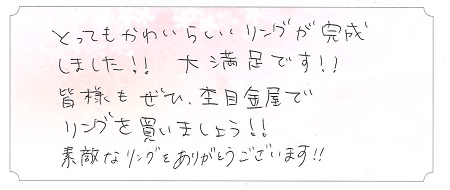 とってもかわいらしいリングが完成
しました!! 大満足です!!
皆様もぜひ、杢目金屋で
リングを買いましょう!!
素敵なリングをありがとうございます!!